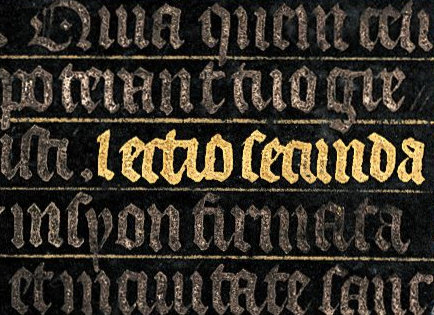 Quia quem celi
poterant tuo gre
isti. lectio secunda
in syon firmata
et in ciuitate sanc